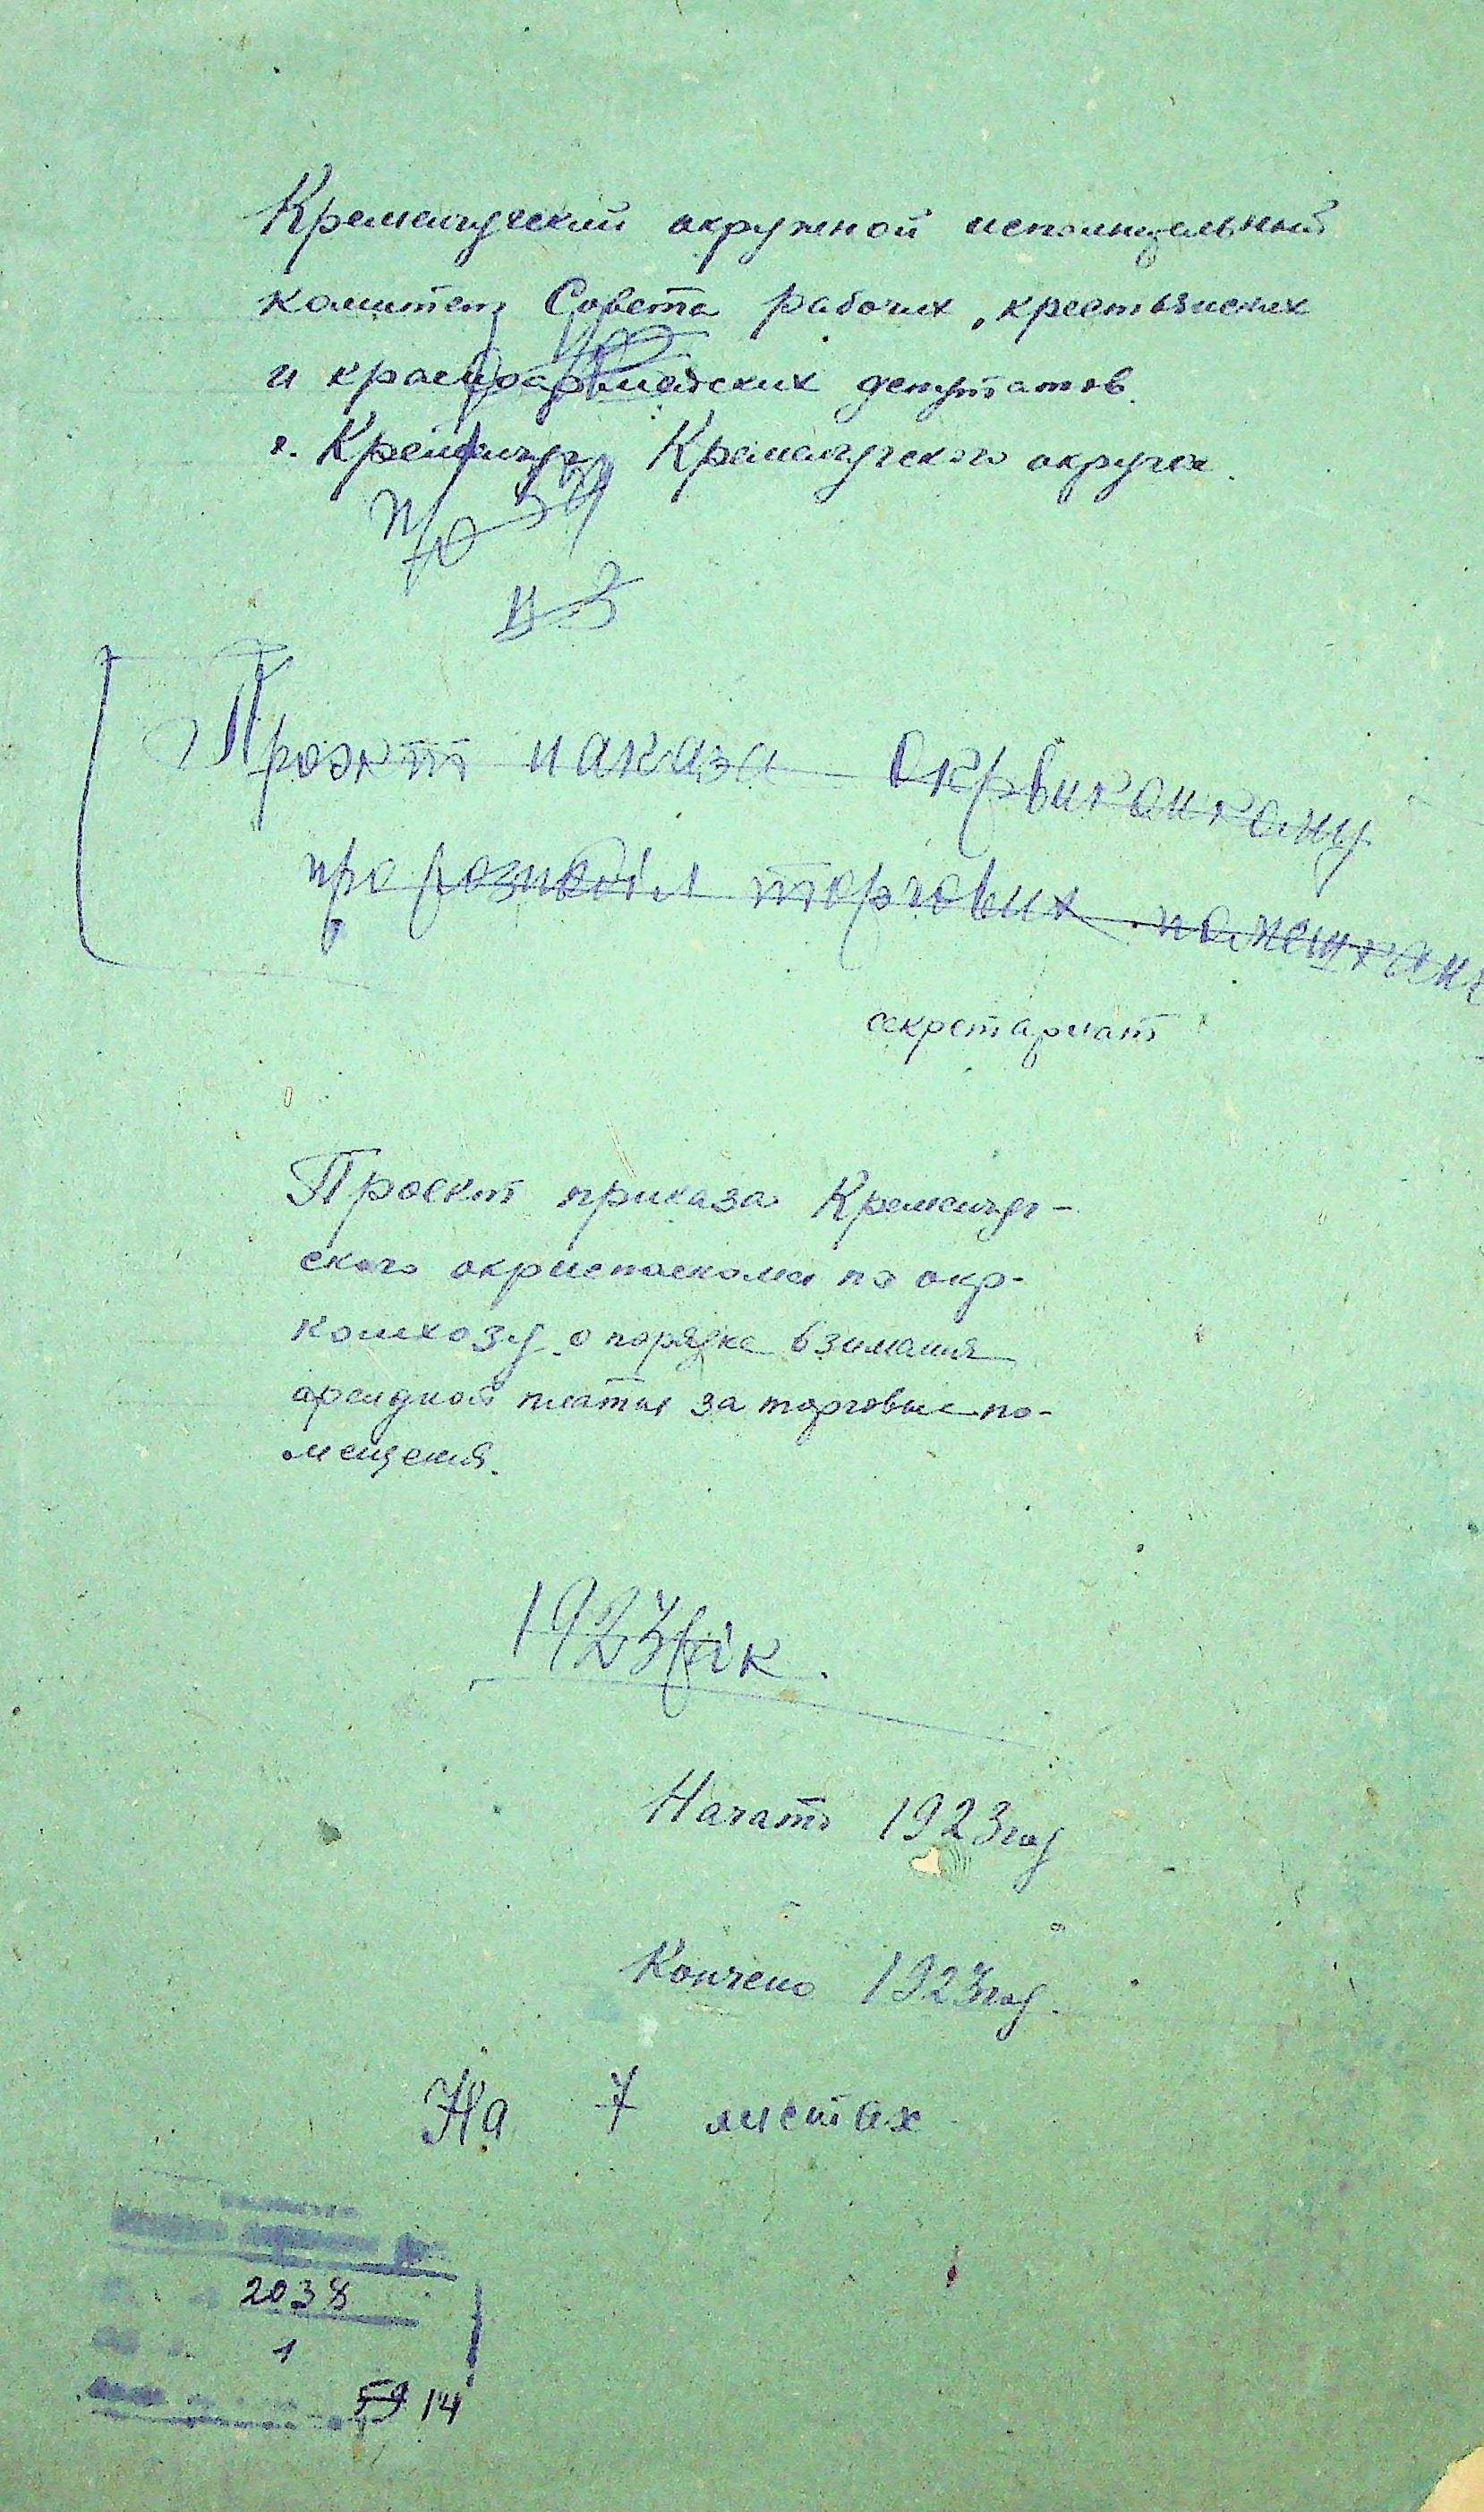 Кременчугский окружной исполнительный
комитет Совета рабочих, крестьянских
и красноармейских депутатов.
г. Кременчуг Кременчугского округа.
п/о 59
Проэкт наказа окрвиконкому
про розподіл торгових помешкань
секретариат
Проект приказа Кременчуг-
ского окрисполкома по окр-
комхозу о порядке взимания
арендной платы за торговые по-
мещения.
1923 рік.
Начато 1923 год
Кончено 1923 год.
На 7 листах
2038
1
59 14